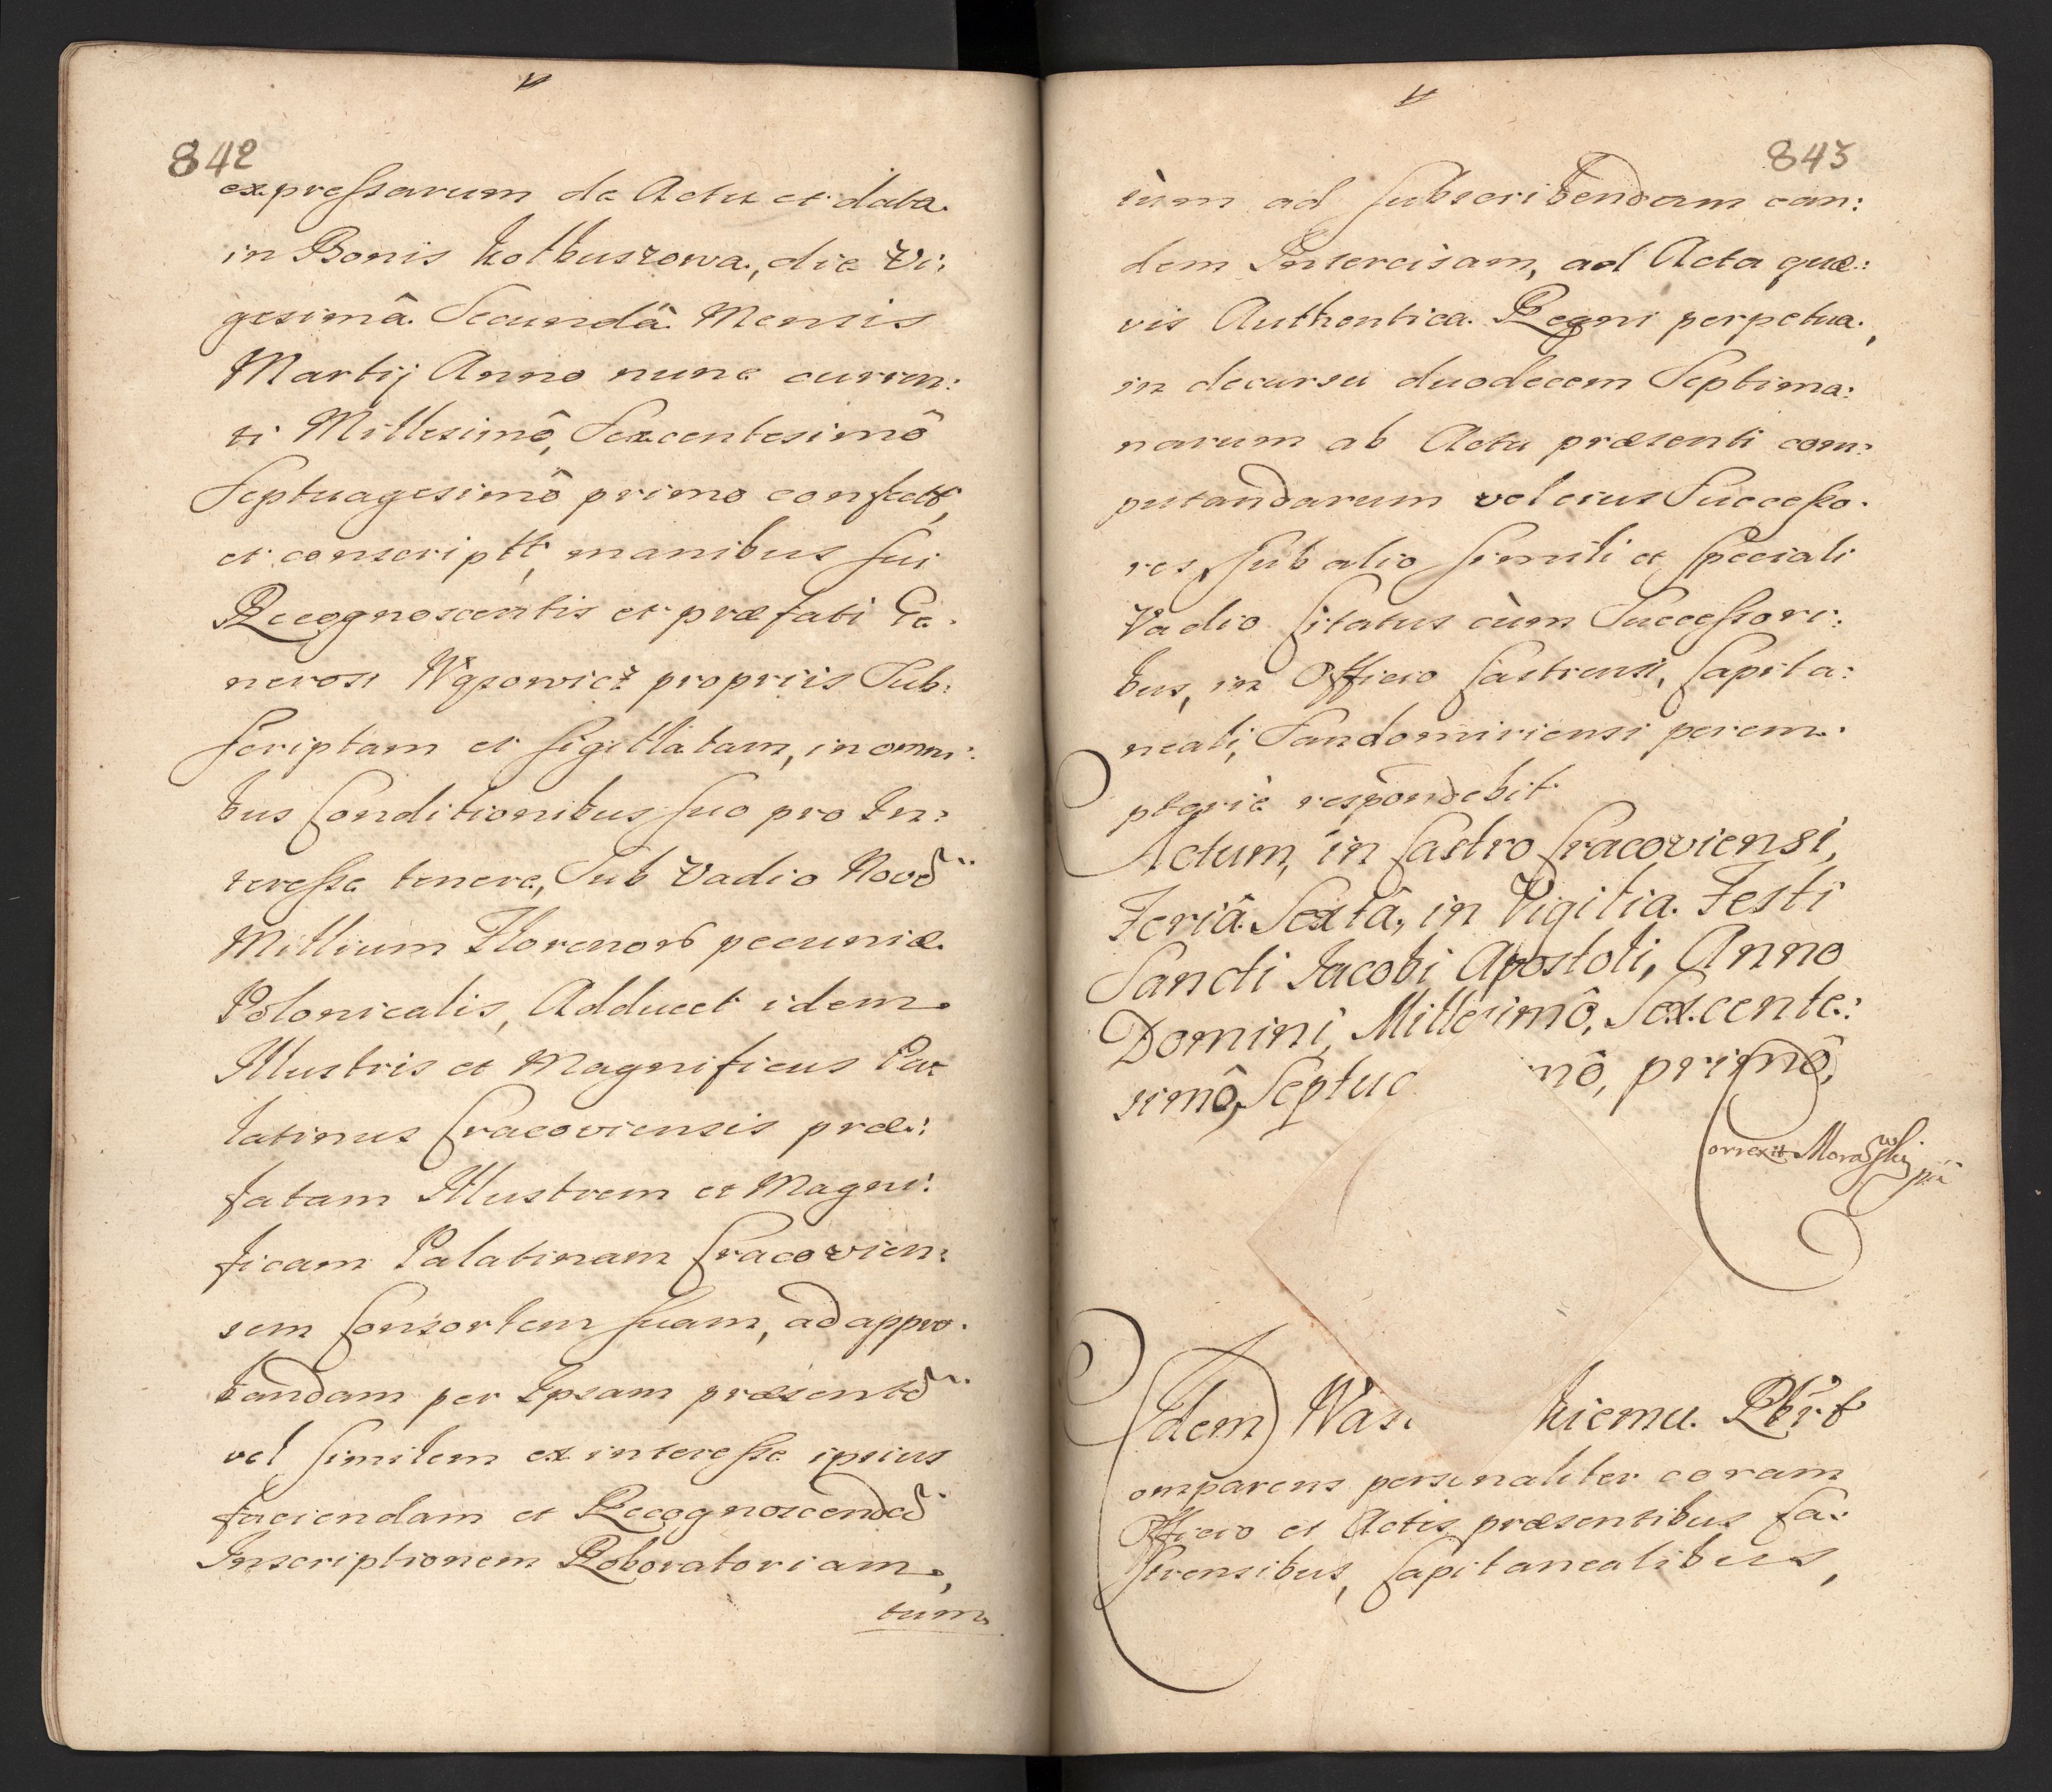 842
expressarum de Actu et data
in Bonis Kolbuszowa, die Vi:
gesimâ Secundâ Mensis
Martij Anno nunc curren:
ti Millesimô, Sexcentesimô
Septuagesimô primo confectt,
et conscriptt, manibus sui
Recognoscentis et præfati Ge:
nerosi Wąsowicz propriis Sub:
scriptam et sigillatam, in omni:
bus Conditionibus suo pro In:
teresse tenere, Sub Vadio Novē
Millium Florenorō pecuniæ
Polonicalis, Adducet idem
Illustris et Magnificus Pa:
latinus Cracoviensis præ:
fatam Illustrem et Magni:
ficam Palatinam Cracovien:
sem Consortem suam, ad appro:
bandam per Ipsam præsentē
vel similem ex interesse ipsius
faciendam et Recognoscendā
Inscriptionem Roboratoriam,
tum
843
tùm ad subscribendam ean:
dem Intercisam, ad Acta quæ:
vis Authentica Regni perpetua,
in decursu duodecem Septima:
narum ab Actu præsenti com:
putandarum vel eius Successo:
res, sub alio simili et speciali
Vadio Citatus cùm Successori:
bus, in Officio Castrensi, Capita:
neali, Sandomiriensi perem:
ptoriè respondebit
Actum, in Castro Cracoviensi,
Feriâ Sextâ, in Vigilia Festi
Sancti Jacobi Apostoli, Anno
Domini, Millesimô, Sexcente:
simô, Septua mô, primô,
Correxit Morawski
Idem Wąs kiemu
Comparens personaliter coram
Officio et Actis præsentibus Ca:
strensibus, Capitanealibus,